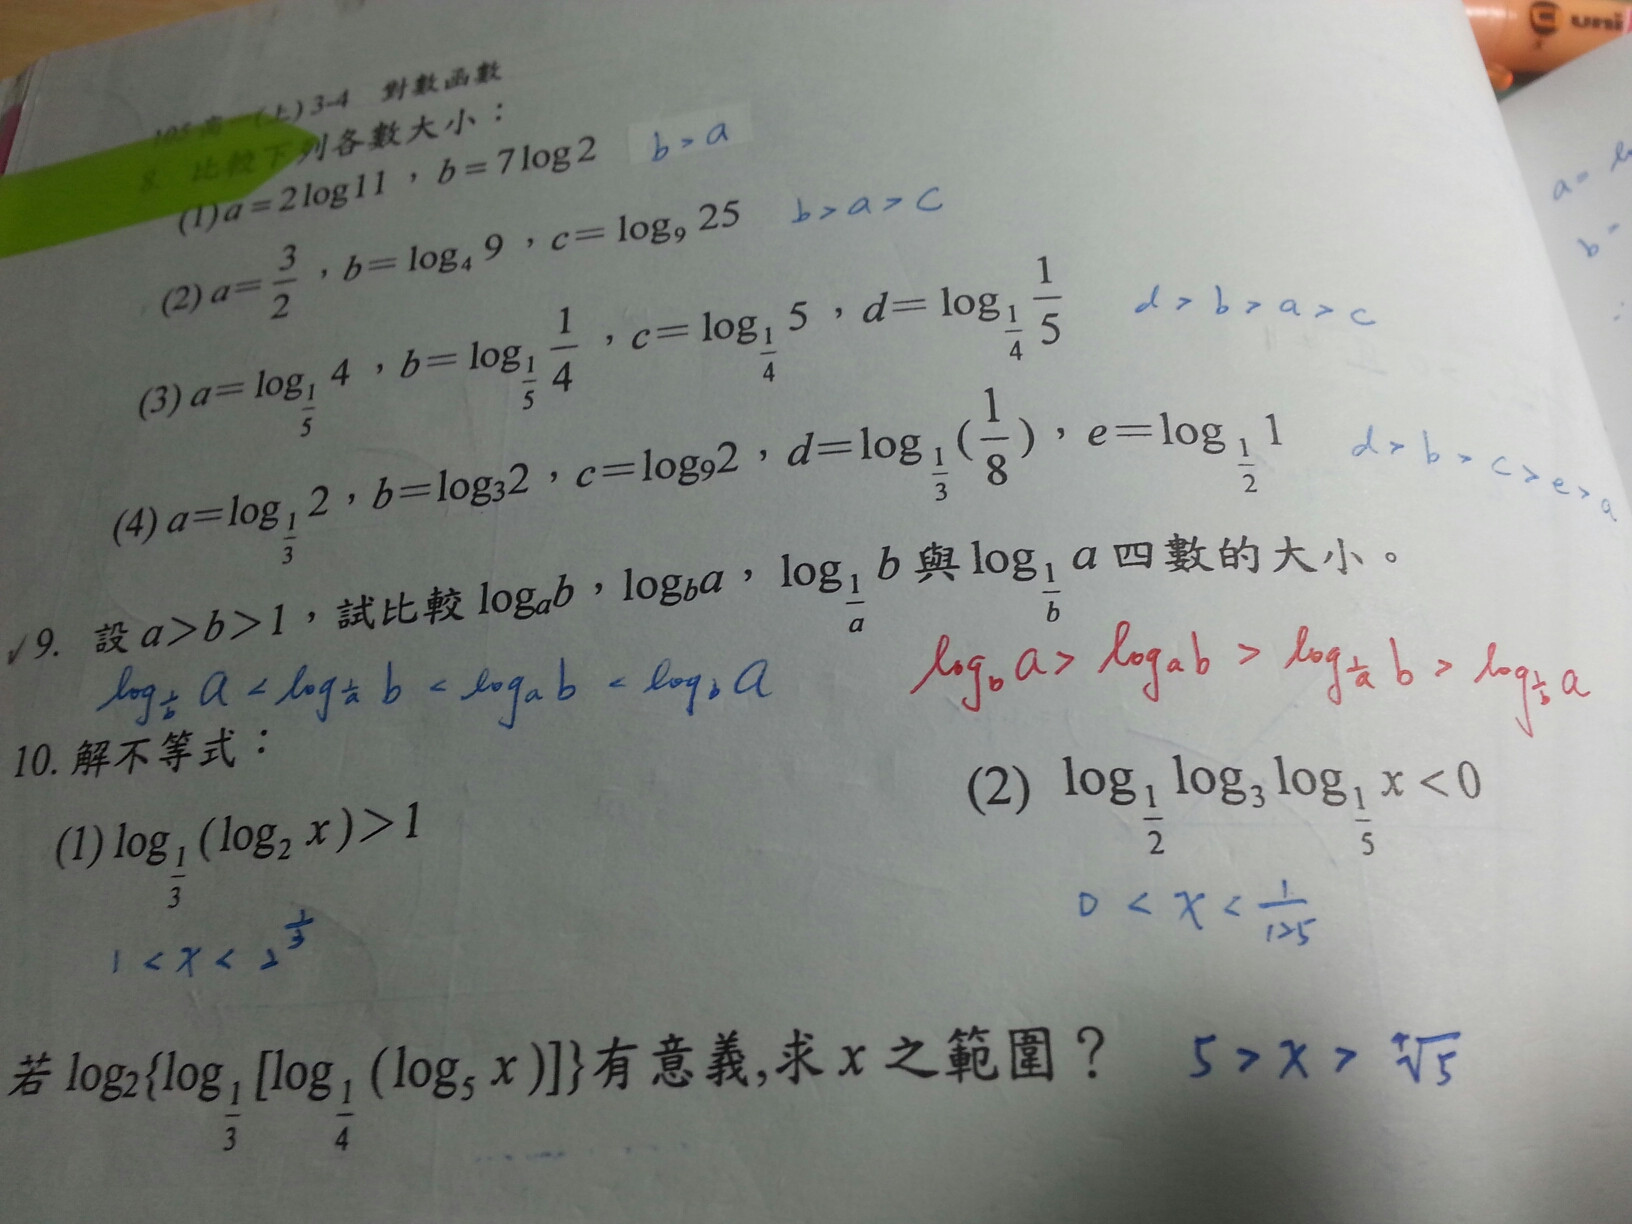 (上)3-4 對數函數
8. 比較下列各數大小：
(1) a=2log11，b=7log2 b>a
(2) a=3/2，b=log₄ 9，c=log₉ 25 b>a>c
(3) a=log_{1/5} 4，b=log_{1/5} 1/4，c=log_{1/4} 5，d=log_{1/4} 1/5 d>b>a>c
(4) a=log_{1/3} 2，b=log₃2，c=log₉2，d=log_{1/3} (1/8)，e=log_{1/2} 1 d>b>c>e>a
✓9. 設 a>b>1，試比較 log_a b，log_b a，log_{1/a} b 與 log_{1/b} a 四數的大小。
log_{1/b} a < log_{1/a} b < log_a b < log_b a
log_b a > log_a b > log_{1/a} b > log_{1/b} a
10. 解不等式：
(1) log_{1/3} (log₂ x)>1
(2) log_{1/2} log₃ log_{1/5} x<0
1<x<2^{1/3}
0<x<1/125
若 log₂{log_{1/3} [log_{1/4} (log₅ x)]}有意義,求 x 之範圍？ 5>x>⁴√5
uni
a=
b=